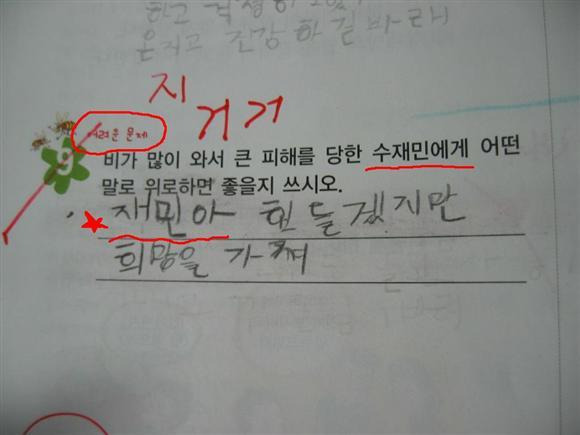 하고
온지고 건강 하길 바래
지
거거
어려운 문제
9
비가 많이 와서 큰 피해를 당한 수재민에게 어떤
말로 위로하면 좋을지 쓰시오.
재민아 힘들겠지만
희망을 가져